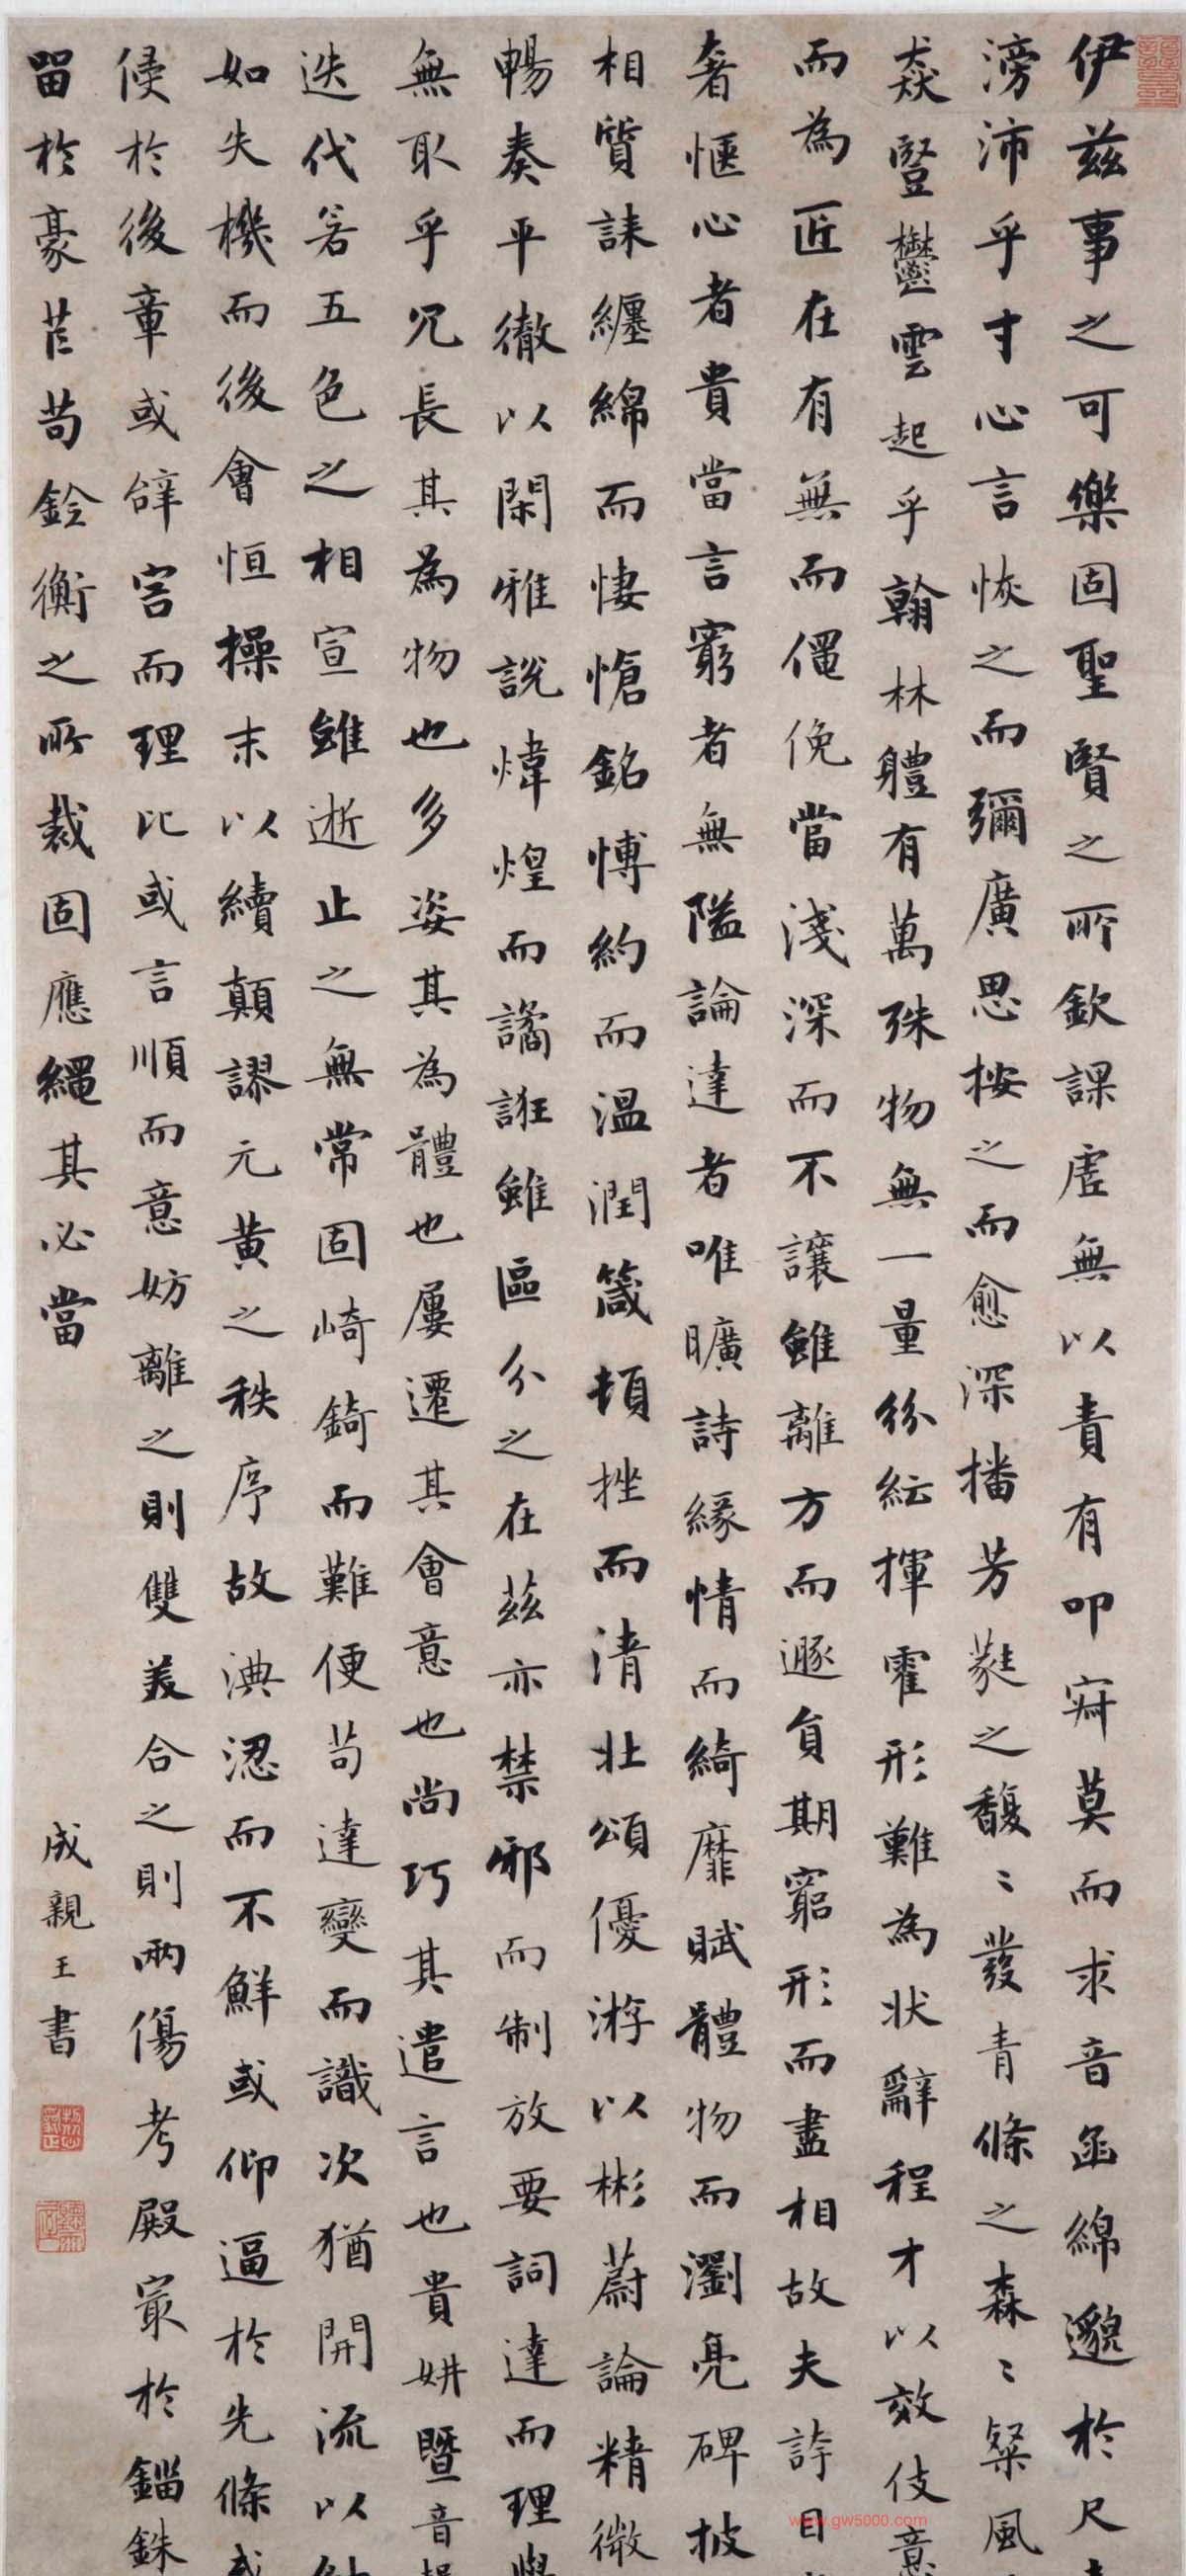 伊茲事之可樂固聖賢之所欽課虛無以責有叩寂莫而求音函綿邈於尺
滂沛乎寸心言恢之而彌廣思按之而愈深播芳蕤之馥〻發青條之森〻粲風
猋豎鬱雲起乎翰林體有萬殊物無一量紛紜揮霍形難為狀辭程才以效伎意
而為匠在有無而僶俛當淺深而不讓雖離方而遯負期窮形而盡相故夫誇目
奢愜心者貴當言窮者無隘論達者唯曠詩緣情而綺靡賦體物而瀏亮碑披
相質誄纏綿而悽愴銘博約而溫潤箴頓挫而清壯頌優游以彬蔚論精微
暢奏平徹以閑雅說煒煌而譎誑雖區分之在茲亦禁邪而制放要詞達而理
無取乎冗長其為物也多姿其為體也屢遷其會意也尚巧其遣言也貴妍暨音
迭代若五色之相宣雖逝止之無常固崎錡而難便茍達變而識次猶開流以
如失機而後會恒操末以續顛謬元黃之秩序故淟涊而不鮮或仰逼於先條或
侵於後章或辭害而理比或言順而意妨離之則雙美合之則兩傷考殿最於錙銖
留於豪芒茍銓衡之所裁固應繩其必當
成親王書
www.gw5000.com